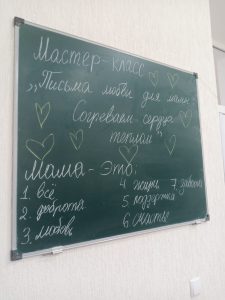 Мастер-класс
„Письма любви для мамы:
Согреваем сердца
теплом"
Мама - Это:
1. всё 4 жизнь 7 забота
2. доброта 5 поддержка
3. любовь 6 счастье